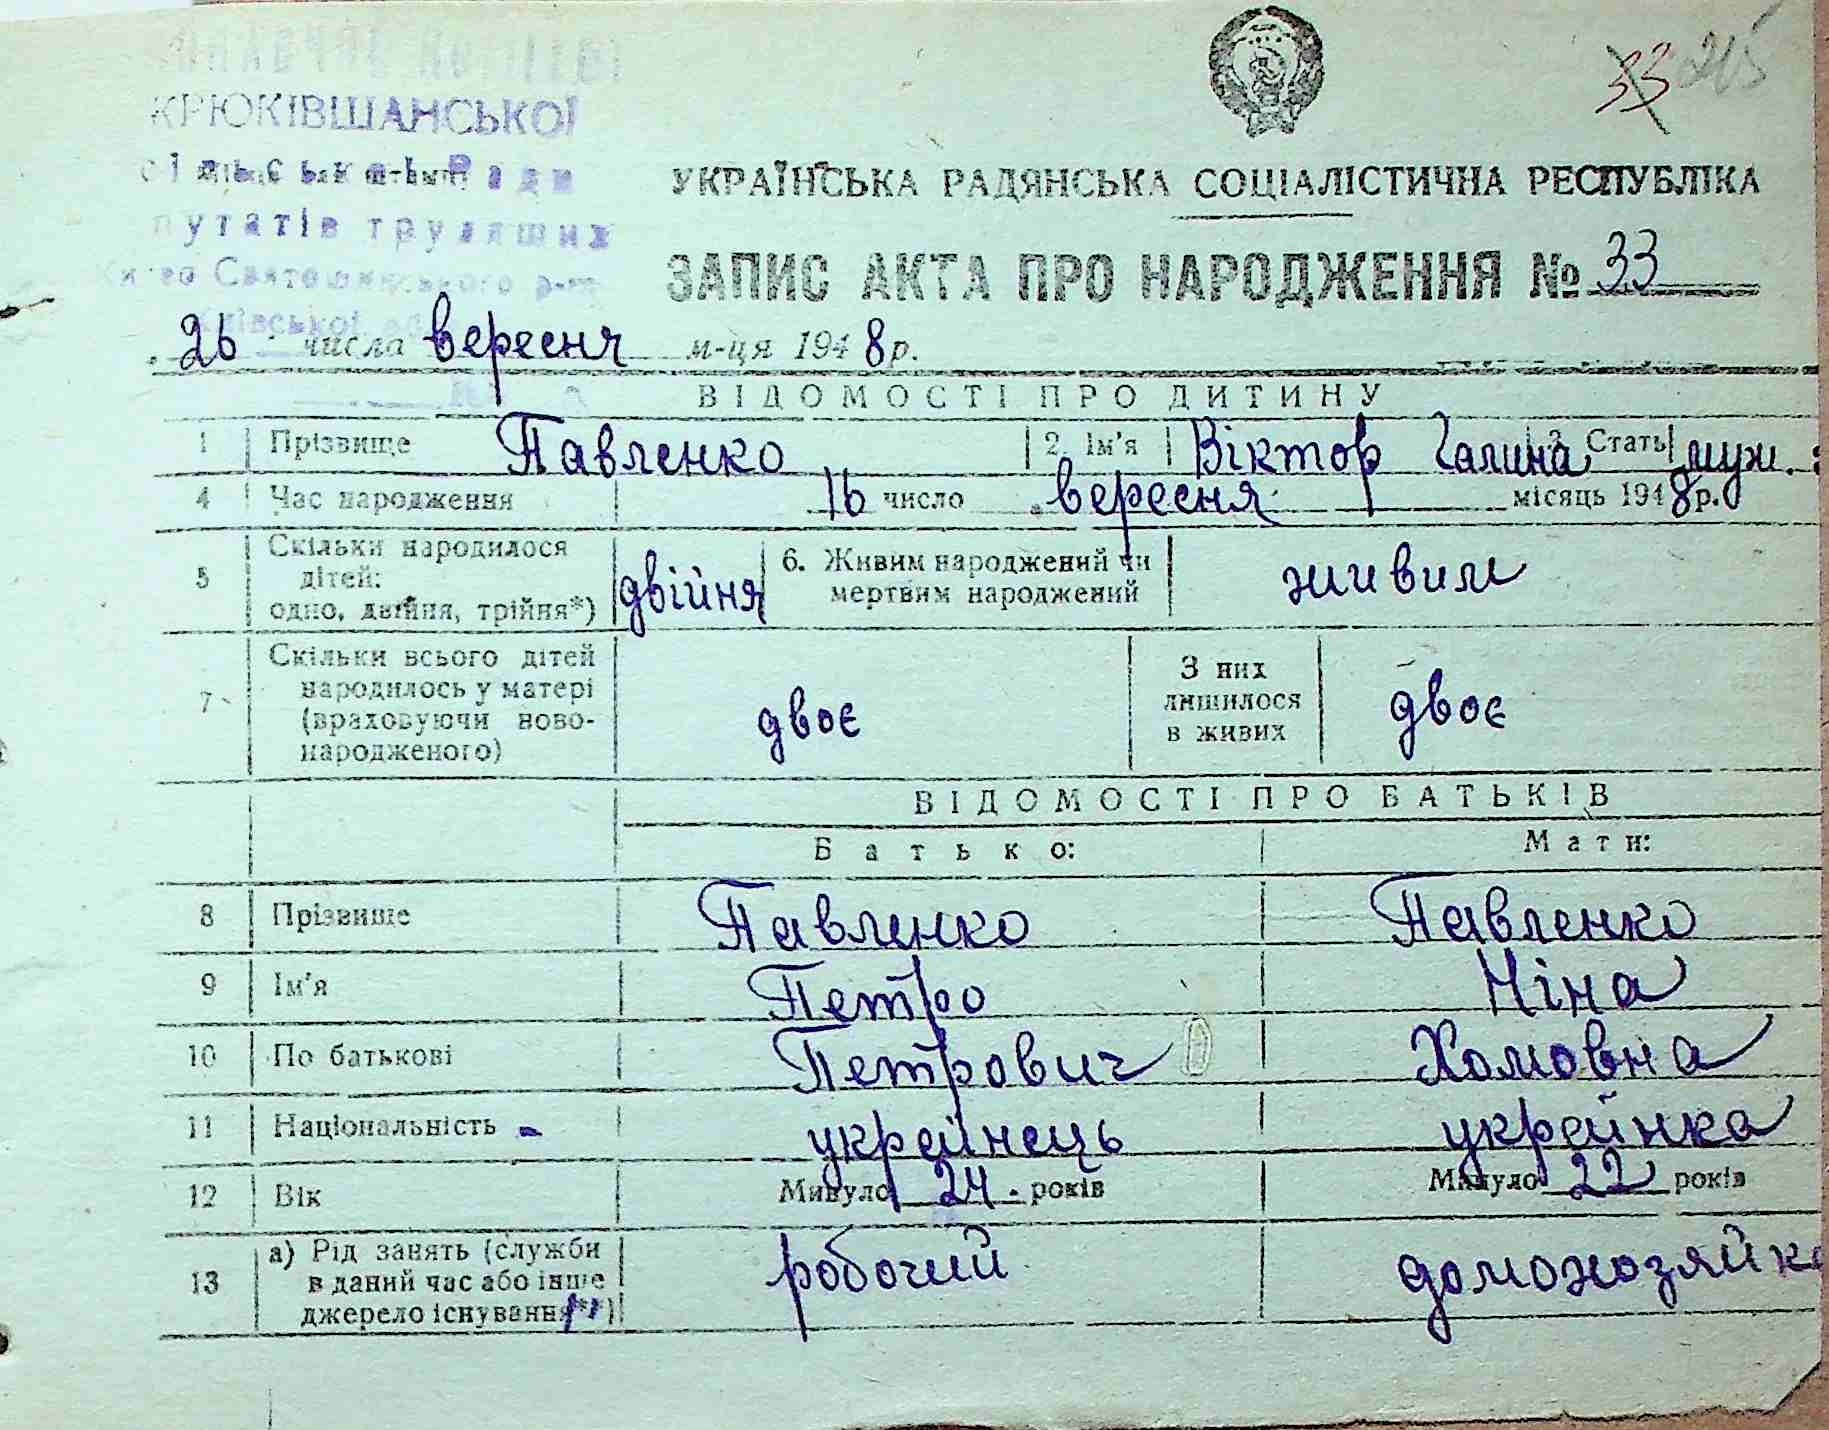 33 215
КРЮКІВЩАНСЬКОЇ
сільської Ради
путатів трудящих
Києво Святошинського р-ну
Київської
УКРАЇНСЬКА РАДЯНСЬКА СОЦІАЛІСТИЧНА РЕСПУБЛІКА
ЗАПИС АКТА ПРО НАРОДЖЕННЯ № 33
26 числа вересня м-ця 1948 р.
ВІДОМОСТІ ПРО ДИТИНУ
1 Прізвище Павленко 2. Ім'я Віктор Галина 3. Стать муж.
4 Час народження 16 число вересня місяць 1948 р.
5 Скільки народилося дітей: одно, двійня, трійня*) двійня 6. Живим народжений чи мертвим народжений живим
7 Скільки всього дітей народилось у матері (враховуючи ново-народженого) двоє З них лишилося в живих двоє
ВІДОМОСТІ ПРО БАТЬКІВ
Батько: Мати:
8 Прізвище Павленко Павленко
9 Ім'я Петро Ніна
10 По батькові Петрович Хомовна
11 Національність украйнець украйнка
12 Вік Минуло 24 років Минуло 22 років
13 а) Рід занять (служби в даний час або інше джерело існування**) робочий домохозяйка